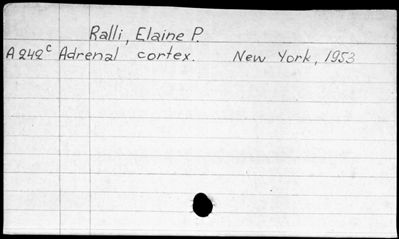 Ralli, Elaine P.
A242c Adrenal cortex. New York, 1953